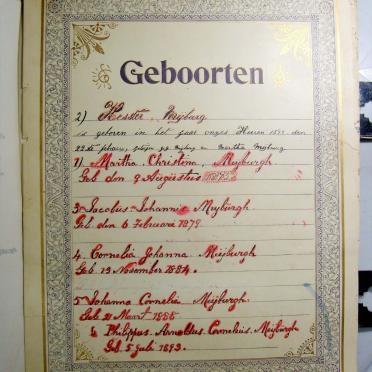 Geboorten
2) Hester, Meijburg
is geboren in het jaar onzes Heeren 18 den
22ste
1) Martha, Christina, Meijburgh
Geb den 9 Augustus
3 Jacobus Johannis Meyburgh
Geb den 6 Februarie 1879.
4. Cornelia Johanna Meijburgh
Geb 13 November 1884.
5 Johanna Cornelia Meijburgh.
Geb 21 Maart 1888
6 Philippus. Arnoldus. Cornelius. Meijburgh
Geb. 5 Juli 1893.